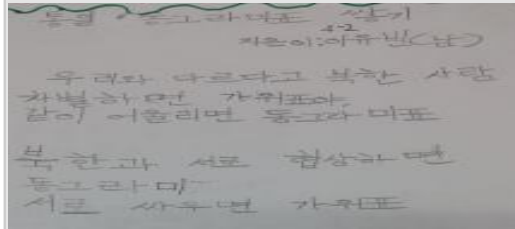 통일 동그라미표 찾기
4-2
지은이:이유빈(남)
우리와 다르다고 북한 사람
차별하면 가위표야.
같이 어울리면 동그라미표
북한과 서로 협상하면
동그라미
서로 싸우면 가위표